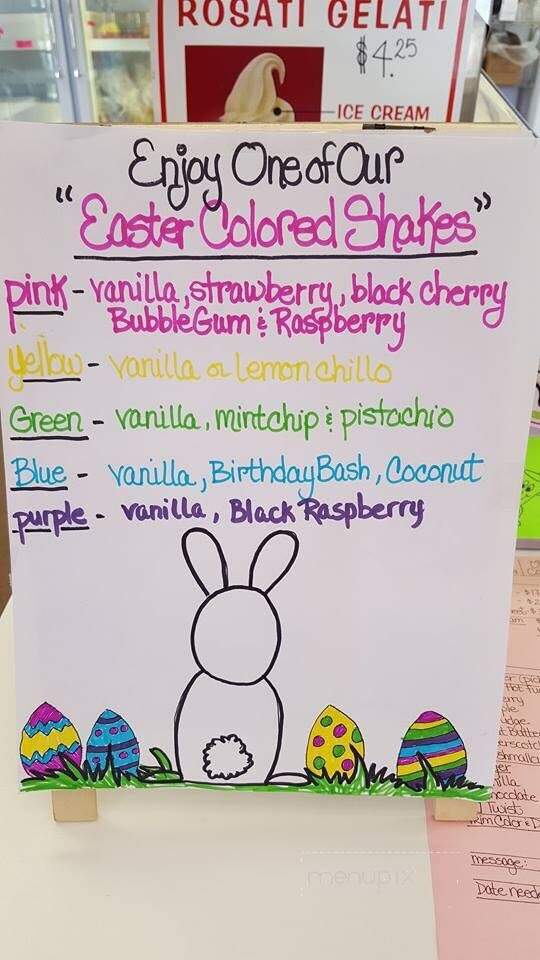 ROSATI GELATI
$4.25
ICE CREAM
Enjoy One of Our
"Easter Colored Shakes"
pink - vanilla, strawberry, black cherry
BubbleGum & Raspberry
yellow - vanilla or lemon chillo
Green - vanilla, mintchip & pistachio
Blue - vanilla, Birthday Bash, Coconut
purple - vanilla, Black Raspberry
menupix
Twist
message:
Date